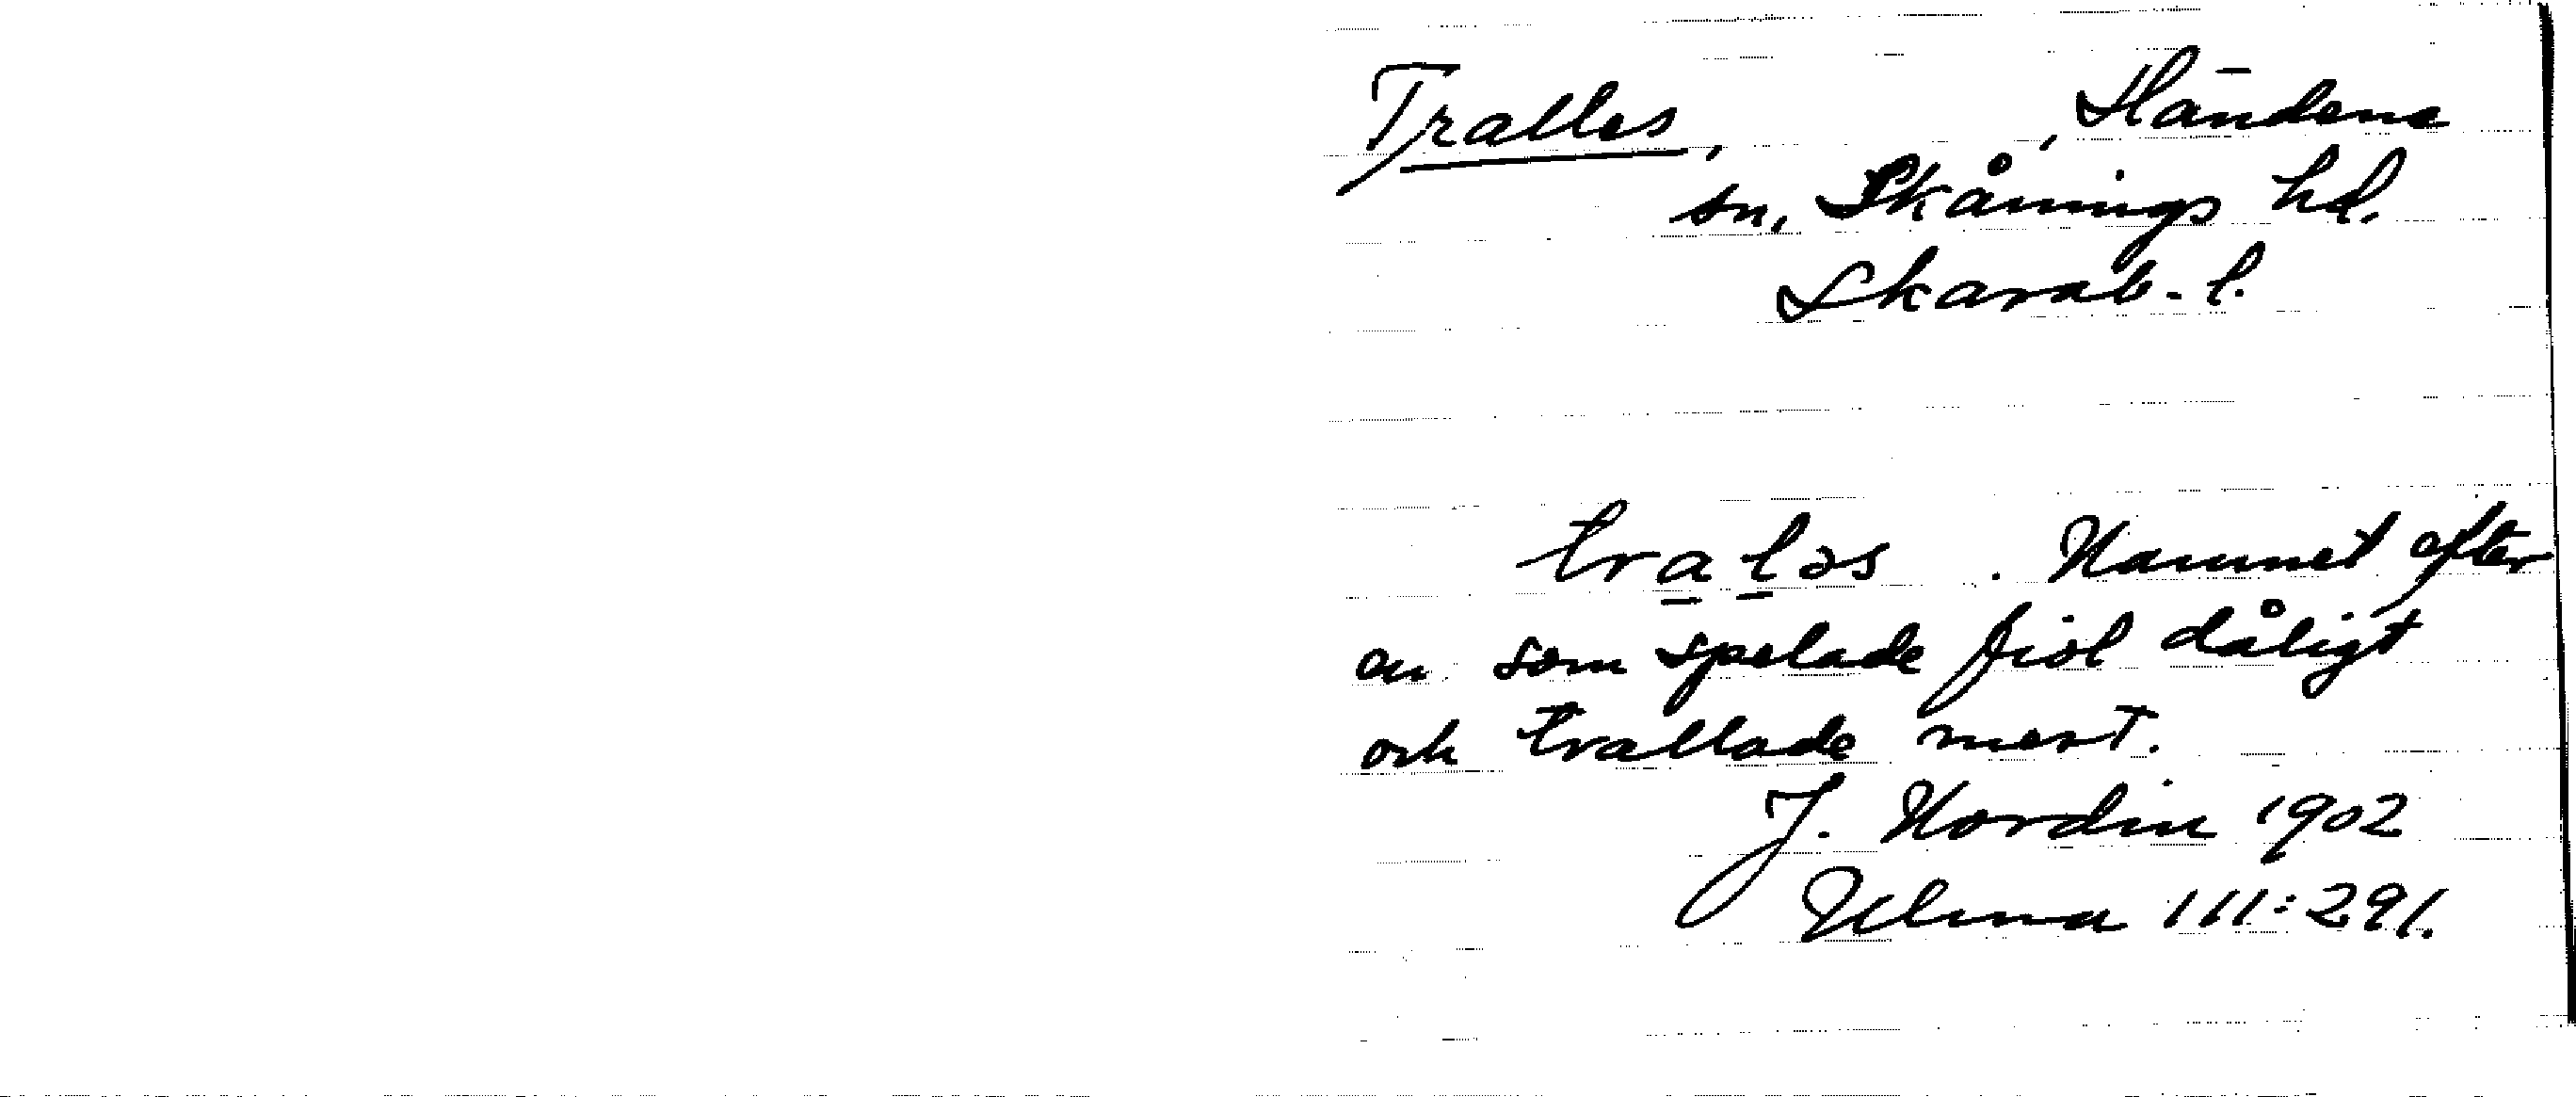 Tralles, , Händene
sn, Skånings hd.
Skarab. l.
tralǝs . Namnet efter
en som spelade fiol dåligt
och trallade mest.
J. Nordin 1902
Ulma 111:291.